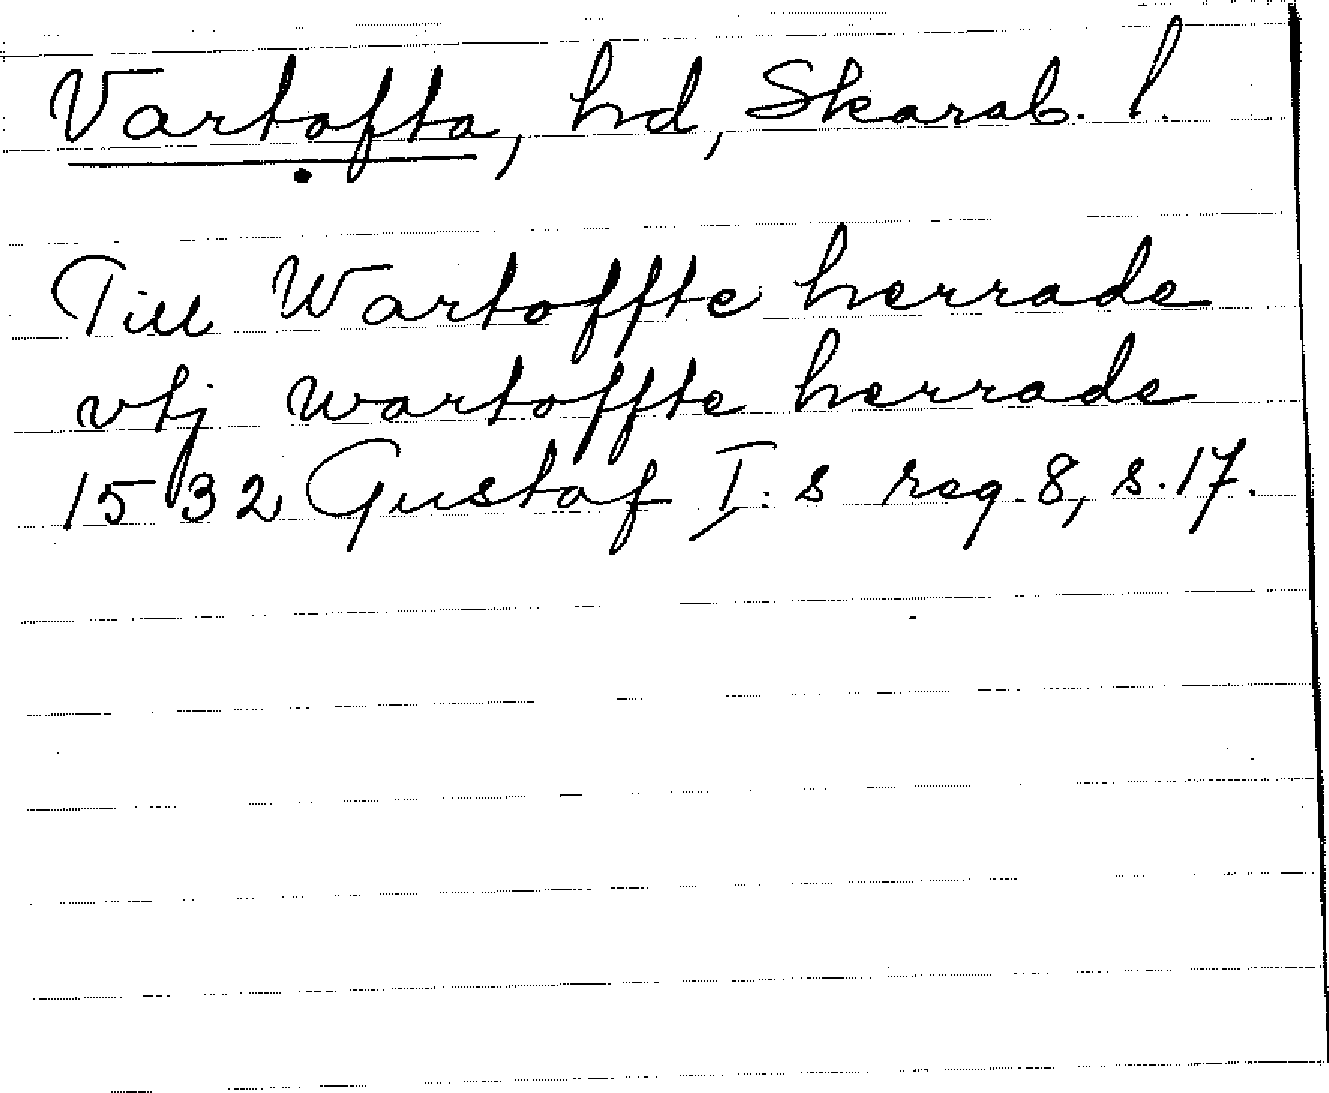 Vartofta, hd, Skarab. l.
Till Wartoffte herrade
vtj wartoffte herrade
1532 Gustaf I:s reg 8, s. 17.